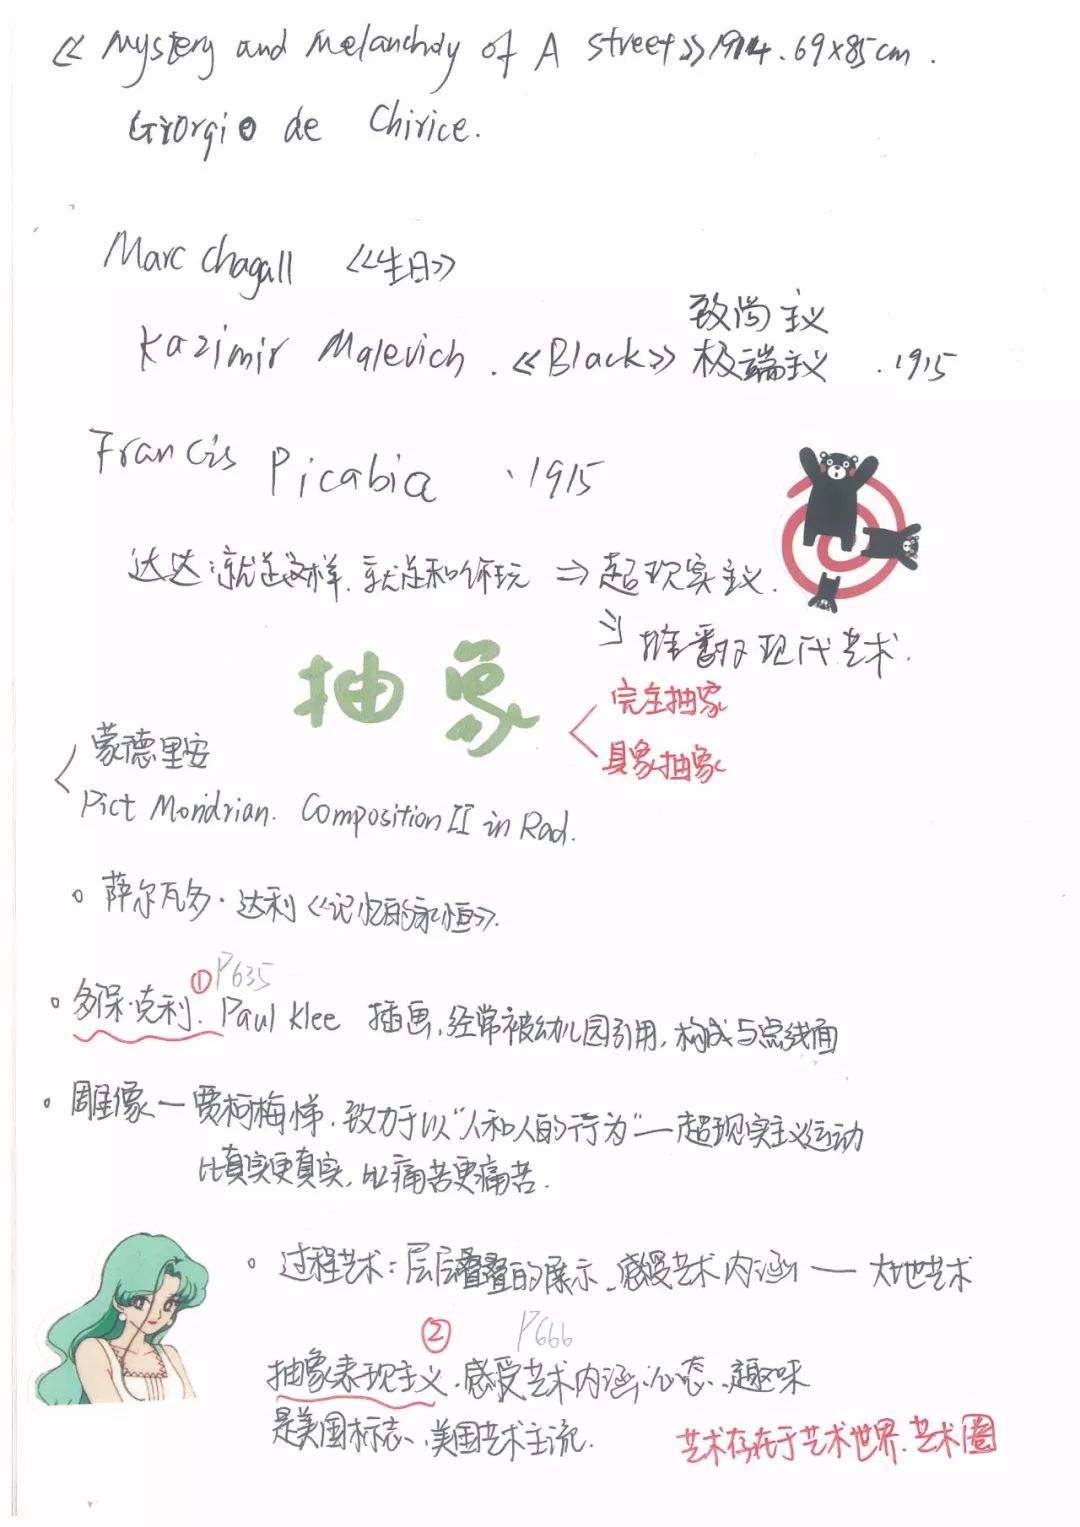 《Mystery and Melancholy of A street》1914.69×85cm.
Giorgio de Chirice.
Marc Chagall 《生日》
致尚主义
Kazimir Malevich.《Black》极端主义.1915
Francis Picabia、1915
达达:就是这样.就是和你玩⇒超现实主义.
⇒推翻了现代艺术.
抽象
完全抽象
具象抽象
蒙德里安
Pict Mondrian. Composition II in Rad.
萨尔瓦多·达利《记忆的永恒》.
① P635
多保·克利. Paul Klee 插画,经常被幼儿园引用,构成与点线面
雕像—贾柯梅悌.致力于以"人和人的行为"—超现实主义运动
比真实更真实,比痛苦更痛苦.
过程艺术:层层叠叠的展示、感受艺术内涵——大地艺术
② P666
抽象表现主义.感受艺术内涵、心态、趣味
是美国标志、美国艺术主流.
艺术存在于艺术世界.艺术圈